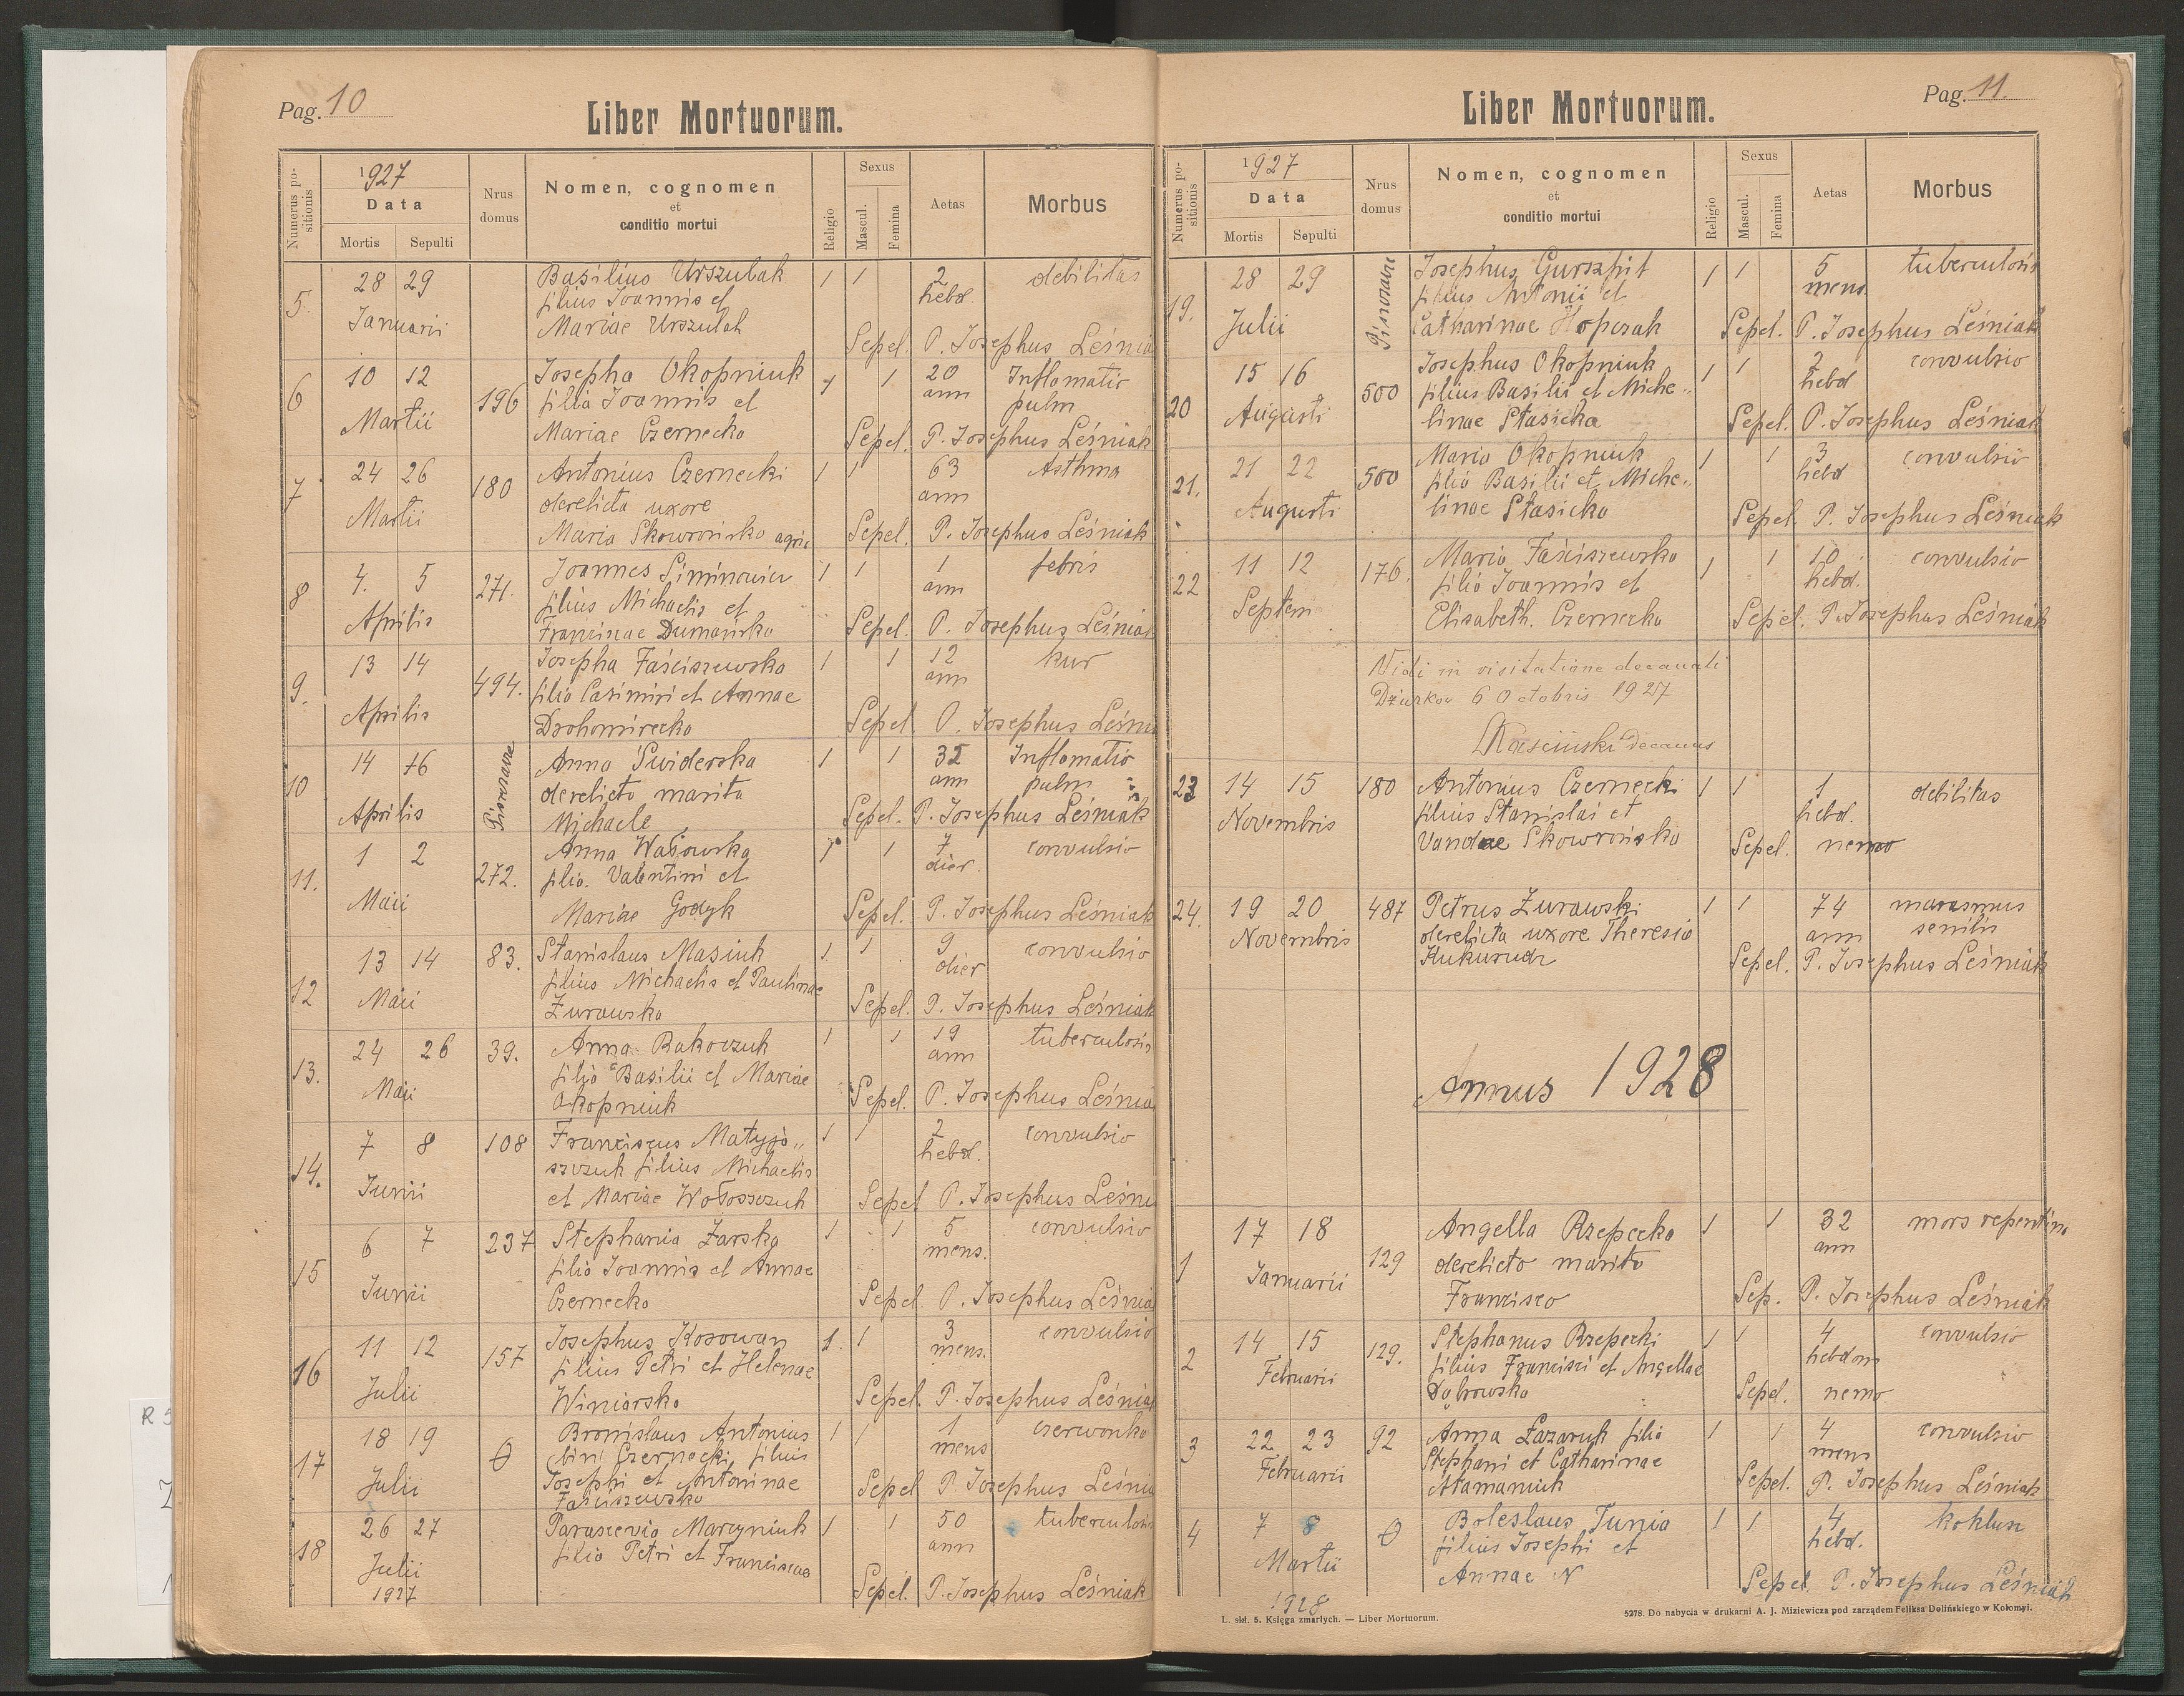 Pag. 10
Liber Mortuorum.
Numerus positionis
1927
Data
Mortis Sepulti
Nrus domus
Nomen, cognomen
et
conditio mortui
Religio
Sexus
Mascul. Femina
Aetas
Morbus
5. 28 29 Basilius Urszulak 1 1 2 debilitas
filius Joannis et hebd
Januarii Mariae Urszulak
Sepel. P. Josephus Leśnia
6 10 12 196 Josepha Okopniuk 1 1 20 Inflamatio
filia Joannis et ann pulm
Martii Mariae Czernecka Sepel. P. Josephus Leśniak
7 24 26 180 Antonius Czernecki 1 1 63 Asthma
derelicta uxore ann
Martii Maria Skowrońska agric Sepel. P. Josephus Leśniak
8 4. 5 271. Joannes Siminowicz 1 1 1 febris
filius Michaelis et ann
Aprilis Franciscae Dumańska Sepel. P. Josephus Leśniak
9. 13 14 494. Josepha Faściszewska 1 1 12 kur
filia Casimiri et Annae ann
Aprilis Drohomirecka Sepel P. Josephus Leśnia
10 14 16 Anna Świderska 1 1 35 Inflamatio
derelicto marito ann pulm
Aprilis Michaele Sepel. P. Josephus Leśniak
11. 1 2 272. Anna Wąsowska 1 1 7 convulsio
filia. Valentini et dier.
Maii Mariae Godyk Sepel. P. Josephus Leśniak
12 13 14 83. Stanislaus Masiuk 1. 1 9 convulsio
filius Michaelis et Paulinae dier
Maii Żurawska Sepel. P. Josephus Leśniak
13. 24 26 39. Anna Rakoczuk 1 1 19 tuberculosis
filia Basilii et Mariae ann
Maii Okopniuk Sepel. P. Josephus Leśnia
14. 7 8 108 Franciscus Matyja„ 1 1 2 convulsio
szczuk filius Michaelis hebd.
Junii et Mariae Wołoszczuk Sepel P. Josephus Leśni
15 6 7 237 Stephania Żarska 1 1 5 convulsio
filia Joannis et Annae mens.
Junii Czernecka Sepel P. Josephus Leśnia
16 11 12 157 Josephus Kosowan 1. 1 3 convulsio
filius Petri et Helenae mens.
Julii Winiarska Sepel. P. Josephus Leśniak
17 18 19 0 Bronislaus Antonius 1 1 1 czerwonka
bini Czernecki filius mens
Julii Josephi et Antoninae Sepel P. Josephus Leśnia
Faściszewska
18 26 27 Parascevia Marcyniuk 1 1 50 tuberculosis
Julii filia Petri et Franciscae ann
1927 Sepel. P. Josephus Leśniak
Liber Mortuorum.
Pag. 11.
Numerus positionis
1927
Data
Mortis Sepulti
Nrus domus
Nomen, cognomen
et
conditio mortui
Religio
Sexus
Mascul. Femina
Aetas
Morbus
19. 28 29 Josephus 1 1 5 tuberculosis
filius Antonii et mens.
Julii Catharinae Sepel. P. Josephus Leśniak
20 15 16 500 Josephus Okopniuk 1 1 2 convulsio
filius Basilii et Miche„ hebd
Augusti linae Stasicka Sepel. P. Josephus Leśniak
21. 21 22 500 Maria Okopniuk 1 1 3 convulsio
filia Basilii et Miche„ hebd
Augusti linae Stasicka Sepel. P. Josephus Leśniak
22 11 12 176. Maria Faściszewska 1 1 10 convulsio
filia Joannis et hebd.
Septem Elisabeth. Czernecka Sepel. P. Josephus Leśniak
Vidi in visitatione decanali
Dżurków 6 Octobris 1927
decanus
23 14 15 180 Antonius Czernecki 1 1 1 debilitas
filius Stanislai et hebd.
Novembris Vandae Skowrońska Sepel. nemo
24. 19 20 487 Petrus Żurawski 1 1 74 marasmus
Novembris derelicta uxore Theresia ann senilis
Kukurudz Sepel. P. Josephus Leśniak
Annus 1928
1 17 18 129 Angella Rzepecka 1 1 32 mors repentina
derelicto marito ann
Januarii Francisco Sep. P. Josephus Leśniak
2 14 15 129. Stephanus Rzepecki 1 1 4 convulsio
Februarii filius Francisci et Angellae hebdom
Dąbrowska Sepel. nemo
3 22 23 92 Anna Łazaruk filia 1 1 4 convulsio
Februarii Stephani et Catharinae mens
Atamaniuk Sepel. P. Josephus Leśniak
4 7 8 0 Boleslaus Tunia 1 1 4 koklusz
filius Josephi et hebd.
Martii Annae N Sepel. P. Josephus Leśniak
1928
L. skł. 5. Księga zmarłych. — Liber Mortuorum.
5278. Do nabycia w drukarni A. J. Miziewicza pod zarządem Feliksa Dolińskiego w Kołomyi.